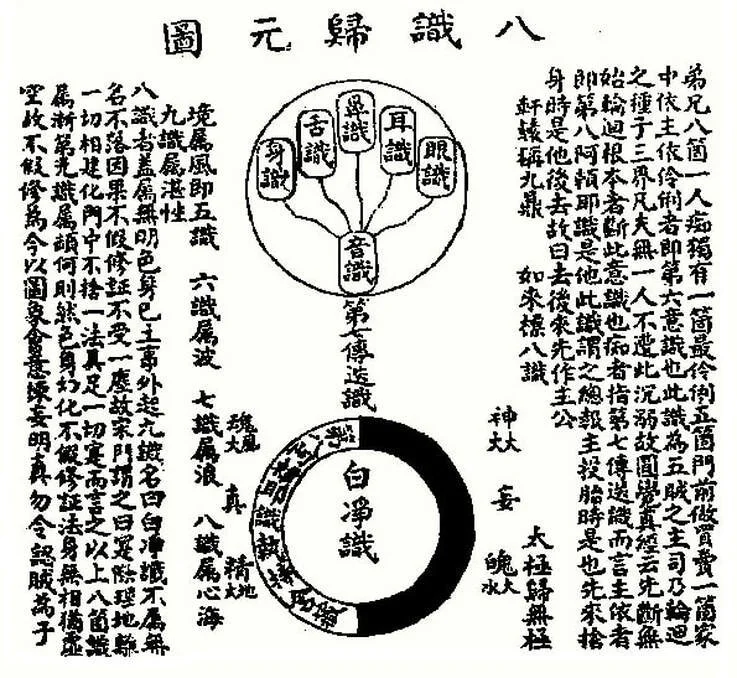 八識歸元圖
弟兄八箇一人痴獨有一箇最伶俐五箇門前做買賣一箇家
中依主依伶俐者即第六意識也此識為五賊之主司乃輪迴
之種子三界凡夫無一人不遭此沉弱故圓覺真經云先斷無
始輪迴根本者斷此意識也痴者指第七傳送識而言主依者
即第八阿頼耶識是他此識謂之總報主投胎時是也先來捨
身時是他後去故曰去後來先作主公
軒轅稱九鼎 如來標八識
眼識
耳識
鼻識
舌識
身識
音識
第七傳送識
白凈識
神火大
妄
魄水大
太極歸無極
魂風大
真
精地大
境属風即五識 六識属波 七識属浪 八識属心海
九識属湛性
八識者蓋属無明色身巳主事外起九識名曰白凈識不属無
名不落因果不假修証不受一塵故宋門謂之曰寔際理地離
一切相建化門中不捨一法具足一切寔而言之以上八箇識
属漸第九識属頓何則然色身幻化不假修証法身無相猶虛
空故不假修為今以圖象會意煉妄明真勿令認賊為子